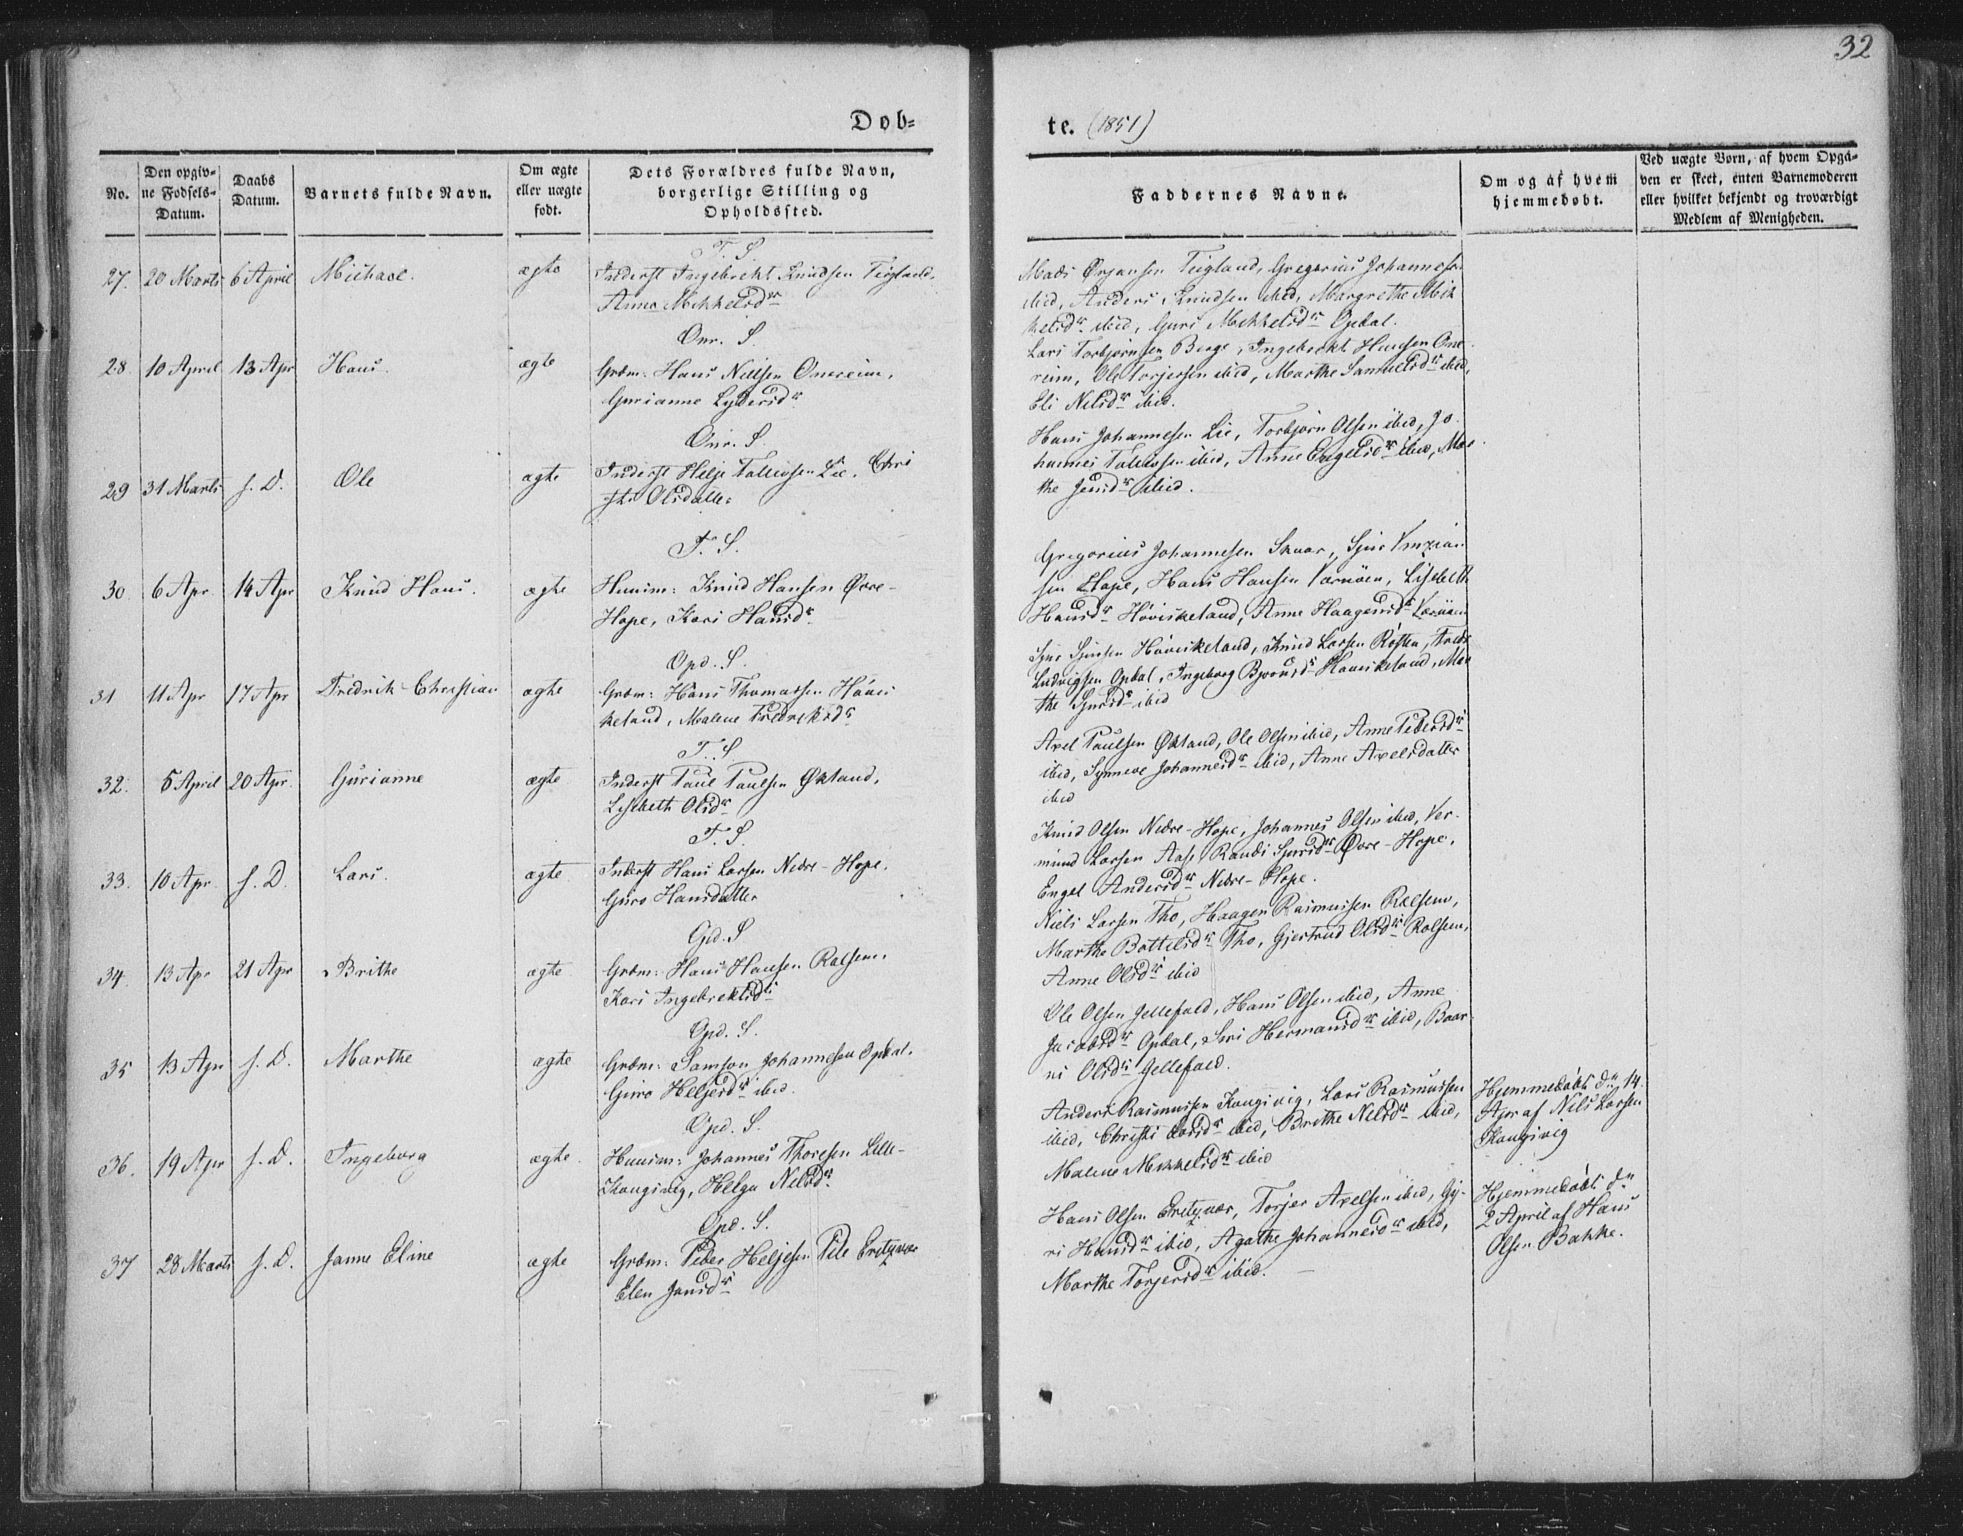 32
Døb=
te. (1851)
No.
Den opgiv-
ne Fødsels-
Datum.
Daabs
Datum.
Barnets fulde Navn.
Om ægte
eller uægte
født.
Dets Forældres fulde Navn,
borgerlige Stilling og
Opholdssted.
Faddernes Navne.
Om og af hvem
hjemmedøbt.
Ved uægte Børn, af hvem Opgi-
ven er skeet, enten Barnemoderen
eller hvilket bekjendt og troværdigt
Medlem af Menigheden.
T. S.
27. 20 Marts 6 April Michael. ægte Inderst Ingebrekt Knudsen Teigland,
Anna Mikkelsdr
Mads Ørjansen Teigland, Gregorius Johannesen
ibid, Anders Knudsen ibid, Margrethe Mik
kelsdr ibid, Guri Mikkelsdr Opdal.
Onr. S.
28. 10 April 13 Apr Hans. ægte Grdm: Hans Nielsen Onereim,
Gurianne Lydersdr
Lars Torbjørnsen Berge, Ingebrekt Hansen One
reim, Ole Torjersen ibid, Marthe Samuelsdr ibid,
Eli Nilsdr ibid.
Onr. S.
29 31 Marts s. D. Ole ægte Inderst Helje Tollevsen Lie, Chri
sti Olsdatter
Hans Johannesen Lie, Torbjørn Olsen ibid, Jo
hannes Tollevsen ibid, Anne Engelsdr ibid, Mar
the Jensdr ibid.
T. S.
30. 6 Apr. 14 Apr Knud Hans. ægte Huusm: Knud Hansen Øvre-
Hope, Kari Hansdr
Gregorius Johannesen Skaar, Sjur
sen Hope, Hans Hansen Værnøen, Lisebeth
Hansdr Høviskeland, Anne Haagensdr Værnøen
Opd. S.
31 11 Apr 17 Apr Fredrik Christian ægte Grdm: Hans Thomassen Høvis
keland, Malene Fredriksdr
Sjur Sjursen Høviskeland, Knud Larsen Røtten, Fredr
Ludvigsen Opdal, Ingeborg Bjørnsdr Høviskeland, Mar
the Sjursdr ibid
T. S
32. 5 April 20 Apr. Gurianne ægte Inderst Paul Paulsen Økland,
Lisebeth Olsdr
Axel Paulsen Økland, Ole Olsen ibid, Anne Pedersdr
ibid, Synneve Johannesdr ibid, Anne Axelsdatter
ibid
T. S.
33. 10 Apr. s. D. Lars. ægte Inderst Hans Larsen Nedre-Hope,
Guro Hansdatter
Knud Olsen Nedre-Hope, Johannes Olsen ibid, Ver-
mund Larsen Aase, Randi Sjursdr Øvre-Hope,
Engel Andersdr Nedre-Hope.
Gd. S
34. 13 Apr 21 Apr Brithe ægte Grdm: Hans Hansen Rolsem,
Kari Ingebrektsdr
Niels Larsen Tho, Haagen Rasmussen Rolsem,
Marthe Bottelsdr Tho, Gjertrud Olsdr Rolsem,
Anne Olsdr ibid
Opd. S.
35 13 Apr s. D. Marthe ægte Grdm: Samson Johannesen Opdal,
Guro Heljesdr ibid.
Ole Olsen Gellefald, Hans Olsen ibid, Anne
Jacobsdr Opdal, Siri Hermansdr ibid, Baar
ni Olsdr Gellefald.
Opd. S.
36. 19 Apr s. D. Ingeborg ægte. Huusm: Johannes Thoresen Lille-
Kongsvig, Helga Nelsdr
Anders Rasmussen Kongsvig, Lars Rasmussen
ibid, Christi Larsdr ibid, Brithe Nelsdr ibid,
Malene Mikkelsdr ibid
Hjemmedøbt dn 14
Apr af Nils Larsen
Kongsvig
Opd. S.
37 28 Marts s. D. Janne Eline ægte Grdm: Peder Heljesen Eritzvær
Elen Jansdr
Hans Olsen Eritzvær, Torjer Axelsen ibid, Gy-
ri Hansdr ibid, Agathe Johannesdr ibid,
Marthe Torjersdr ibid.
Hjemmedøbt dn
2 April af Hans
Olsen Bakke.